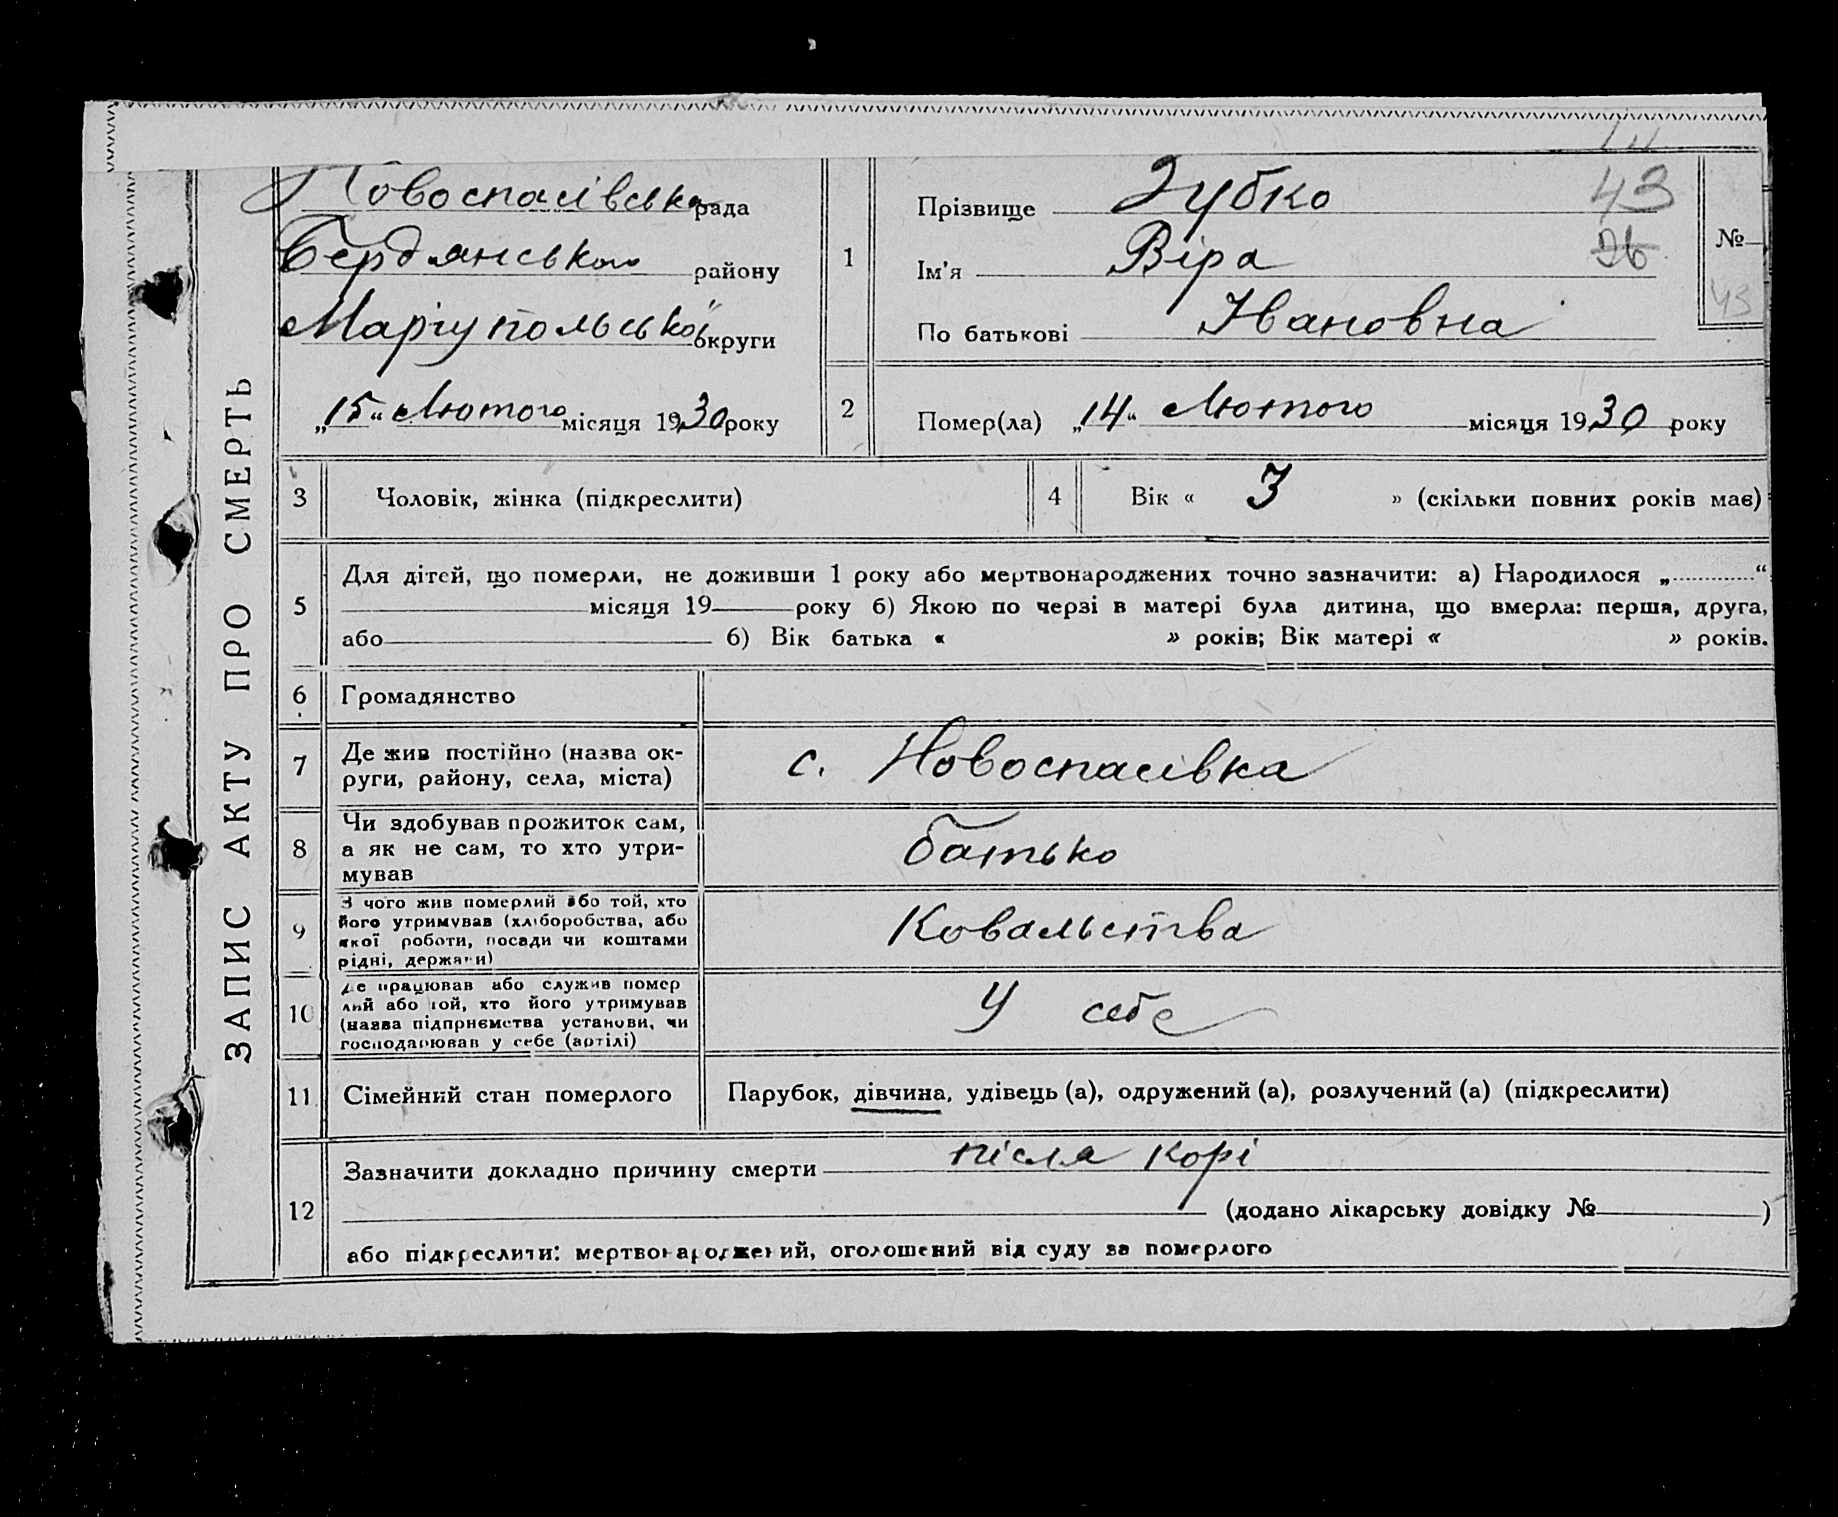 ЗАПИС АКТУ ПРО СМЕРТЬ
Новоспасівська рада
Бердянського району
Маріупольської округи
„15“ Лютого місяця 1930 року
1
Прізвище Зубко
43
Ім'я Віра
26
По батькові Івановна
№
43
2
Помер(ла) „14“ Лютого місяця 1930 року
3 Чоловік, жінка (підкреслити)
4 Вік « 3 » (скільки повних років має)
5
Для дітей, що померли, не доживши 1 року або мертвонароджених точно зазначити: а) Народилося „ “
місяця 19 року б) Якою по черзі в матері була дитина, що вмерла: перша, друга,
або б) Вік батька « » років; Вік матері « » років.
6 Громадянство
7 Де жив постійно (назва ок-
руги, району, села, міста)
с. Новоспасівка
8 Чи здобував прожиток сам,
а як не сам, то хто утри-
мував
батько
9 З чого жив померлий або той, хто
його утримував (хліборобства, або
якої роботи, посади чи коштами
рідні, держави)
Ковальства
10 Де працював або служив помер
лий або той, хто його утримував
(назва підприємства установи, чи
господарював у себе (артілі)
У себе
11 Сімейний стан померлого
Парубок, дівчина, удівець (а), одружений (а), розлучений (а) (підкреслити)
12 Зазначити докладно причину смерти після корі
(додано лікарську довідку № )
або підкреслити: мертвонароджений, оголошений від суду за померлого